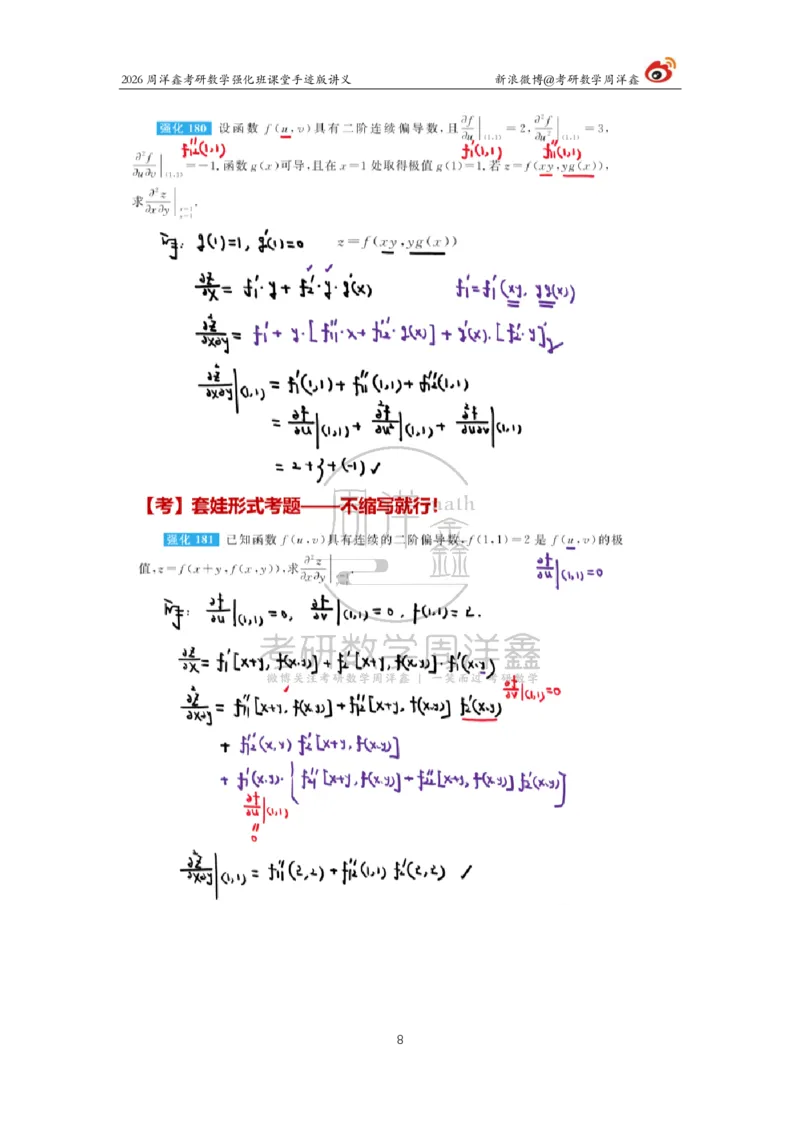 2026 周洋鑫考研数学强化班课堂手迹版讲义 新浪微博@考研数学周洋鑫
强化 180 设函数 f(u,v)具有二阶连续偏导数,且 ∂f/∂u|(1,1) = 2, ∂²f/∂u²|(1,1) = 3,
f₁₂''(1,1) f₁'(1,1) f₁₁''(1,1)
∂²f/∂u∂v|(1,1) = −1,函数 g(x)可导,且在 x=1 处取得极值 g(1)=1,若 z=f(xy,yg(x)),
求 ∂²z/∂x∂y|x=1 y=1.
解: g(1)=1, g'(1)=0 z=f(xy,yg(x))
∂z/∂x = f₁'·y + f₂'·y·g'(x) f₁'=f₁'(xy, yg(x))
∂²z/∂x∂y = f₁' + y·[f₁₁''·x + f₁₂''·g(x)] + g'(x)·[f₂'·y]'y
∂²z/∂x∂y|(1,1) = f₁'(1,1) + f₁₁''(1,1) + f₁₂''(1,1)
= ∂f/∂u|(1,1) + ∂²f/∂u²|(1,1) + ∂²f/∂u∂v|(1,1)
= 2+3+(-1) ✓
【考】套娃形式考题——不缩写就行!
强化 181 已知函数 f(u,v)具有连续的二阶偏导数,f(1,1)=2 是 f(u,v)的极
值,z=f(x+y,f(x,y)),求 ∂²z/∂x∂y|
∂f/∂u|(1,1)=0
解: ∂f/∂u|(1,1)=0, ∂f/∂v|(1,1)=0, f(1,1)=2.
∂z/∂x = f₁'[x+y, f(x,y)] + f₂'[x+y, f(x,y)]·f₁'(x,y)
∂²z/∂x∂y = f₁₁''[x+y, f(x,y)] + f₁₂''[x+y, f(x,y)] f₂'(x,y) ∂f/∂v|(1,1)=0
+ f₁₂''(x,y) f₂'[x+y, f(x,y)]
+ f₁'(x,y)·[f₂₁''[x+y, f(x,y)] + f₂₂''[x+y, f(x,y)] f₂'(x,y)]
∂f/∂u|(1,1)
"
0
∂²z/∂x∂y|(1,1) = f₁₁''(2,2) + f₁₂''(1,1) f₂'(2,2) ✓
周洋鑫 math
考研数学周洋鑫
微博关注考研数学周洋鑫 | 一笑而过 考研数学
8